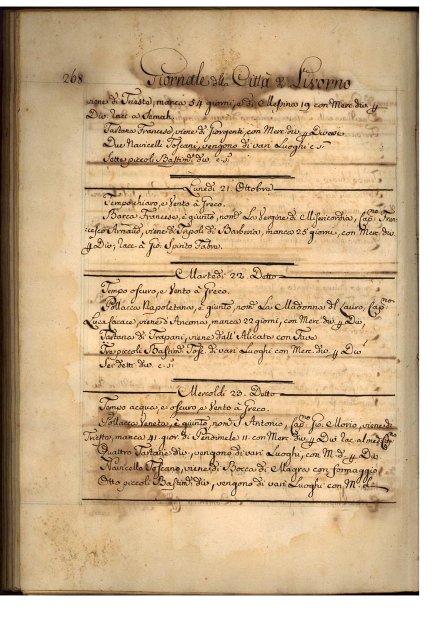 268 Giornale della Città di Livorno
viene di Trieste, manca 54 giorni, e di Messina 19 con Merc. div. 
Div. racc. a Semah.
Tartana Francese, viene di Girgenti, con Merc. div. Diversi
Due Navicelli Toscani, vengono di vari Luoghi c. s.
Sette piccoli Bastim. div. c. s.
Lunedì 21. Ottobre
Tempo chiaro, e Vento à Greco.
Barca Francese, è giunto, nom. La Vergine di Misericordia, Cap. Fran=
cesco Arnaud, viene di Tripoli di Barberia, manca 25 giorni, con Merc. div.
Div., racc. à Gio. Spirito Fabre.
Martedì 22. Detto
Tempo oscuro, e Vento à Greco.
Pollacca Napoletana, è giunto, nom. La Madonna del Lauro, Cap.no
Luca Cacace, viene d'Ancona, manca 22 giorni, con Merc. div. Div.
Tartana di Trapani, viene dall'Alicata con Fave
Tre piccoli Bastim. Tosc. di vari Luoghi con Merc. div. Div.
Sei detti div. c. s.
Mercoldì 23. Detto
Tempo acqua, e oscuro, e Vento à Greco.
Pollacca Veneta, è giunto, nom. S. Antonio, Cap. Gio. Morio, viene di
Trieste, manca 41 gior. di 11 con Merc. div. Div. rac. al med. Cap.no
Quattro Tartane div., vengono di vari Luoghi, con M. d. Div.
Navicello Toscano, viene di Bocca di Magra con formaggio
Otto piccoli Bastim. div., vengono di vari Luoghi con M.